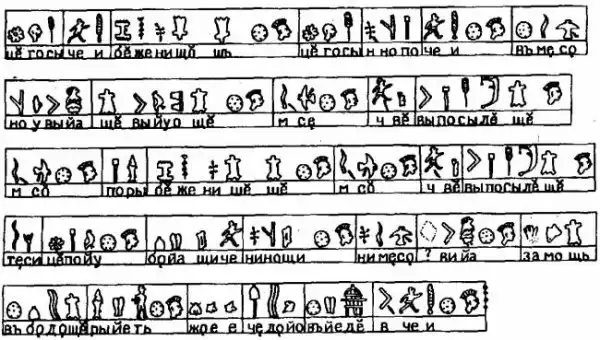 цĕгосы че и бĕженищŏ шь цĕгосы н нопо че и въ мęсŏ
но у выйа щĕ выйуо щĕ м сę ч вĕ выпосылĕ щĕ
м сŏ поры бĕжени щĕ щĕ м сŏ ч вĕ выпосылĕ щĕ
тęси цĕпойу бойа щиче нинощи нимęсо ? вийа за мощь
въ бŏдощĕ рыйеть жое е чęдойо въйедĕ в че и